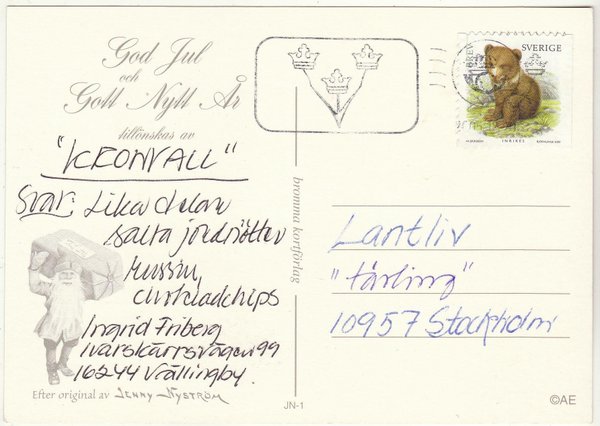 God Jul
och
Gott Nytt År
tillönskas av
"KRONVALL"
Svar: Lika delar
salta jordnötter
Russin,
Ingrid Friberg
Ivarskärrsvägen 99
16244 Vällingby.
Efter original av JENNY NYSTRÖM
bromma kortförlag
JN-1
SVERIGE
INRIKES
Lantliv
"tärling"
10957 Stockholm
©AE